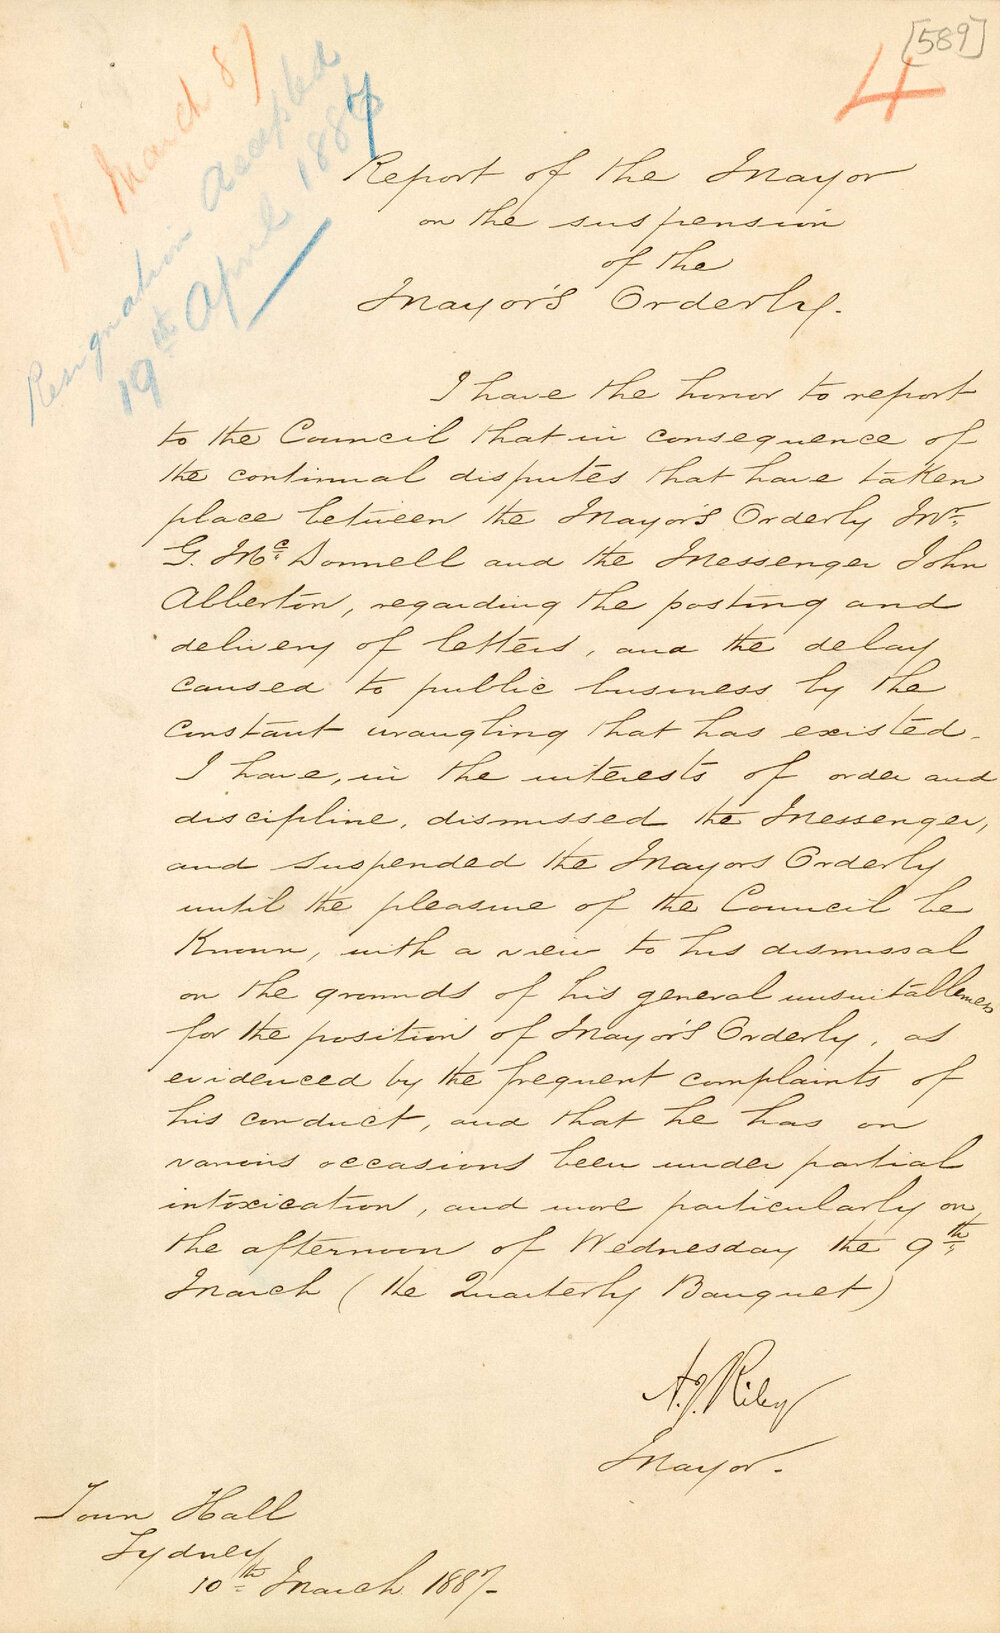 [589]
4
16 March 87
Resignation accepted
19th April 1887
Report of the Mayor
on the suspension
of the
Mayor's Orderly.
I have the honor to report
to the Council that in consequence of
the continual disputes that have taken
place between the Mayor's Orderly Mr.
G. McDonnell and the Messenger John
Abberton, regarding the posting and
delivery of letters, and the delay
caused to public business by the
constant wrangling that has existed.
I have, in the interests of order and
discipline, dismissed the Messenger,
and suspended the Mayors Orderly
until the pleasure of the Council be
Known, with a view to his dismissal
on the grounds of his general unsuitableness
for the position of Mayor's Orderly, as
evidenced by the frequent complaints of
his conduct, and that he has on
various occasions been under partial
intoxication, and more particularly on
the afternoon of Wednesday the 9th
March (the Quarterly Banquet)
A.J. Riley
Mayor.
Town Hall
Sydney
10th March 1887-